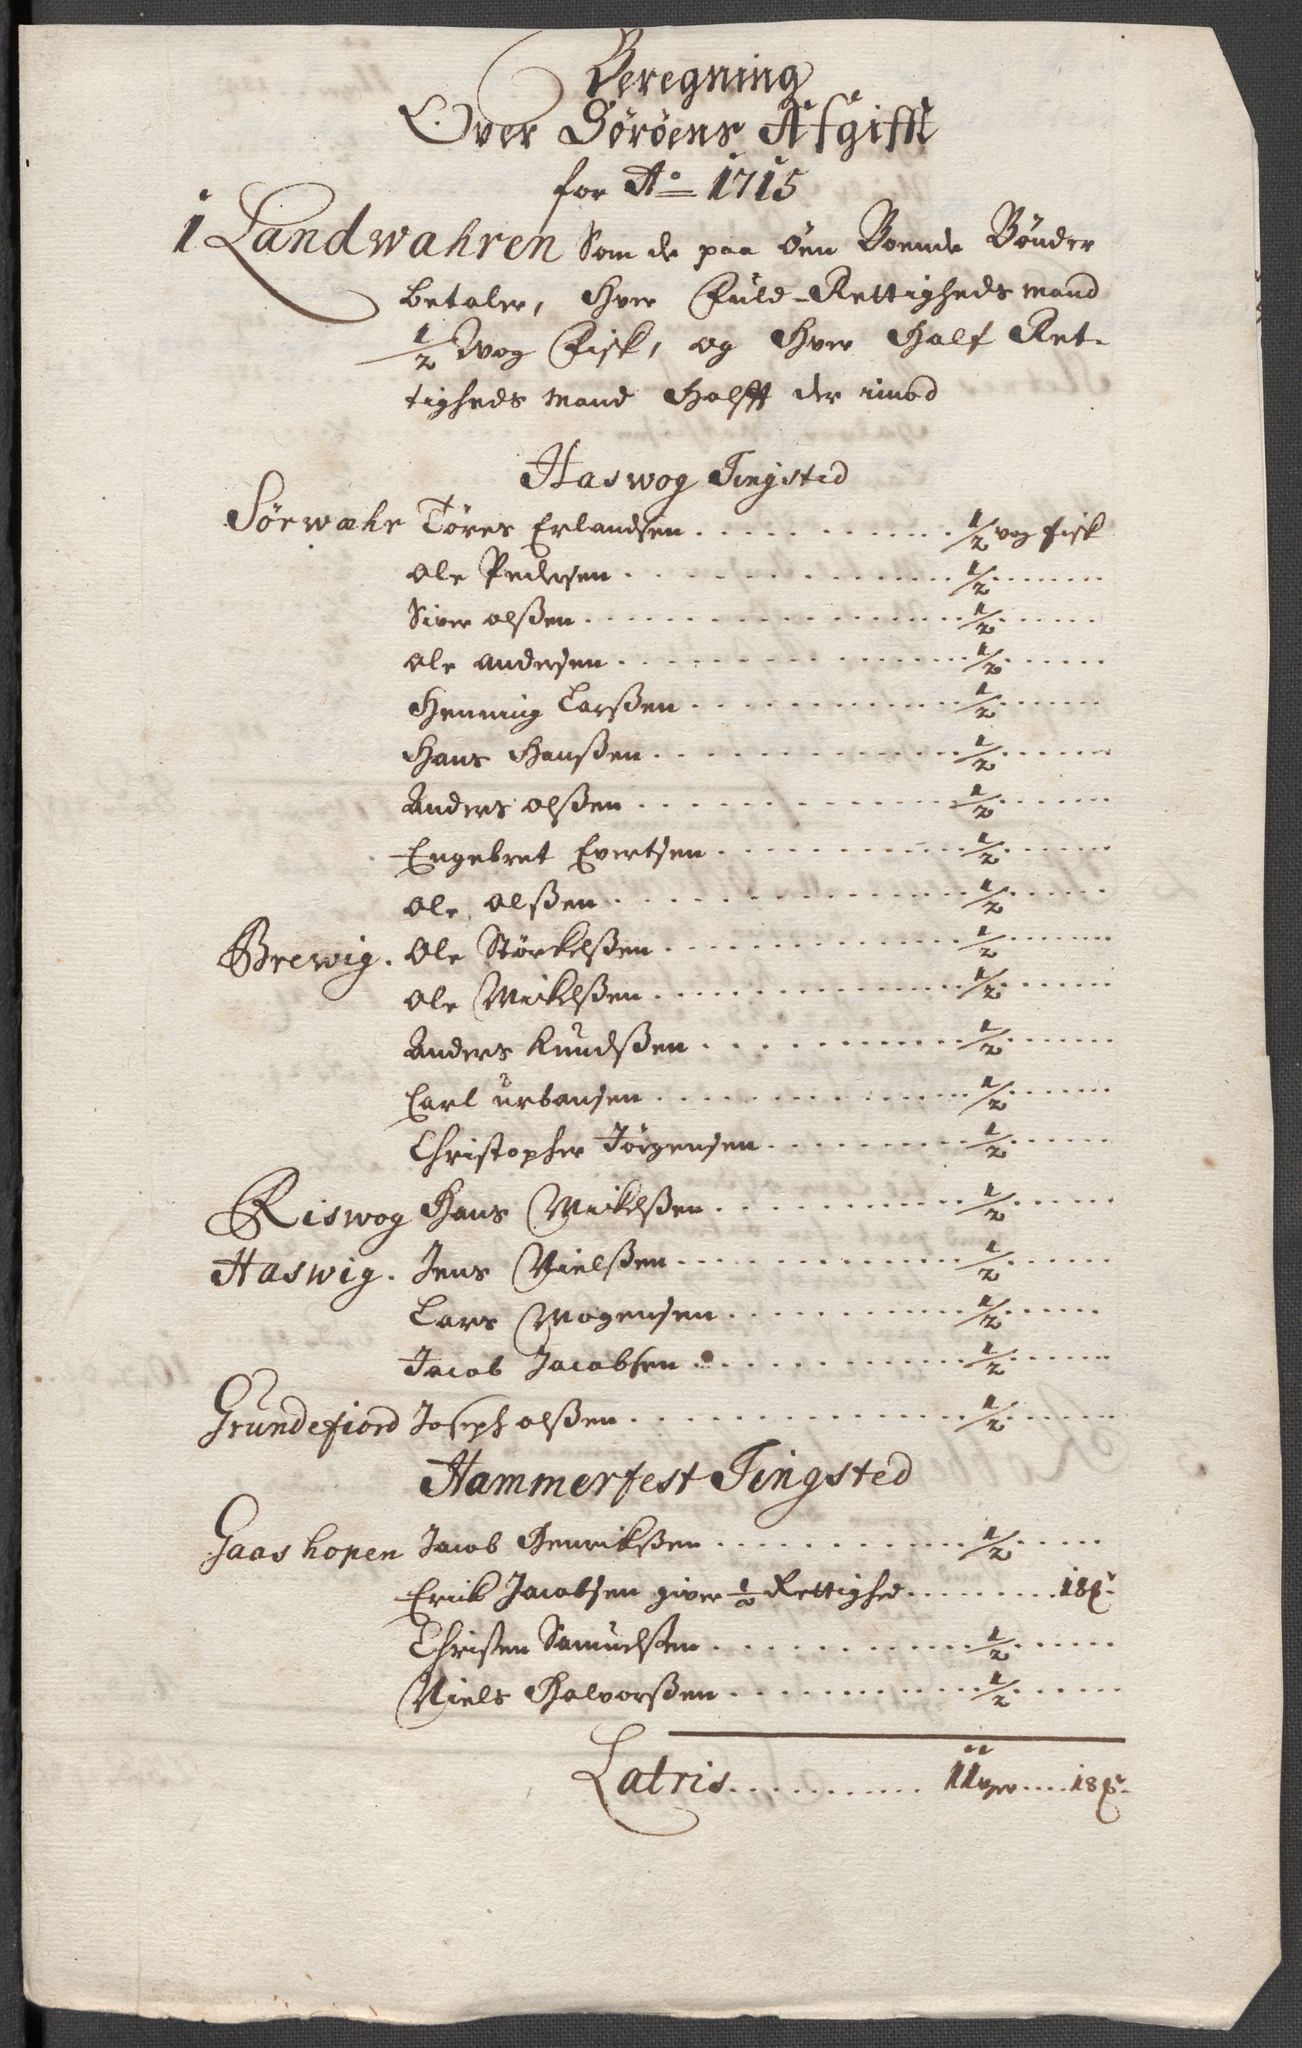 Beregning
Over Sørøens Afgifft
for Ao 1715
1 Landwahren Som de paa Øen Boende Bønder
betaler, Hver Fuld-Rettigheds mand
1/2 Wog Fisk, og Hver Half Ret-
tigheds mand Halfft der imod
Haswog Tingsted
Sørwæhr Töres Erlandsen . . . . . . . . . . 1/2 vog fisk
Ole Pedersen . . . . . . . . . . 1/2 . . . . .
Siver olßen . . . . . . . . . . 1/2 . . . . .
Ole andersen . . . . . . . . . . 1/2 . . . . .
Henning Larßen . . . . . . . . . . 1/2 . . . . .
Hans Hanßen . . . . . . . . . . 1/2 . . . . .
Anders olßen . . . . . . . . . . 1/2 . . . . .
Engebret Evertsen . . . . . . . . . . 1/2 . . . . .
Ole olßen . . . . . . . . . . 1/2 . . . . .
Brewig. Ole Størkelßen . . . . . . . . . . 1/2 . . . . .
Ole Mickelßen . . . . . . . . . . 1/2 . . . . .
Anders Knudßen . . . . . . . . . . 1/2 . . . . .
Carl urbansen . . . . . . . . . . 1/2 . . . . .
Christopher Jörgensen . . . . . . . . . . 1/2 . . . . .
Riswog Hans Mickelßen . . . . . . . . . . 1/2 . . . . .
Haswig. Jens Nielßen . . . . . . . . . . 1/2 . . . . .
Lars Mogensen . . . . . . . . . . 1/2 . . . . .
Jacob Jacobsen . . . . . . . . . . 1/2 . . . . .
Grundefiord Joseph olßen . . . . . . . . . . 1/2 . . . . .
Hammerfest Tingsted
Gaashopen Jacob Henrikßen . . . . . . . . . . 1/2 . . . . .
Erick Jacobsen giver 1/2 Rettighed . . . . . . . . 18 ℔
Christen Samuelßen . . . . . . . . . . 1/2 . . . . .
Niels Halvorßen . . . . . . . . . . 1/2 . . . . .
Latris . . . . . . . . . . 11 wger . . . . 18 ℔